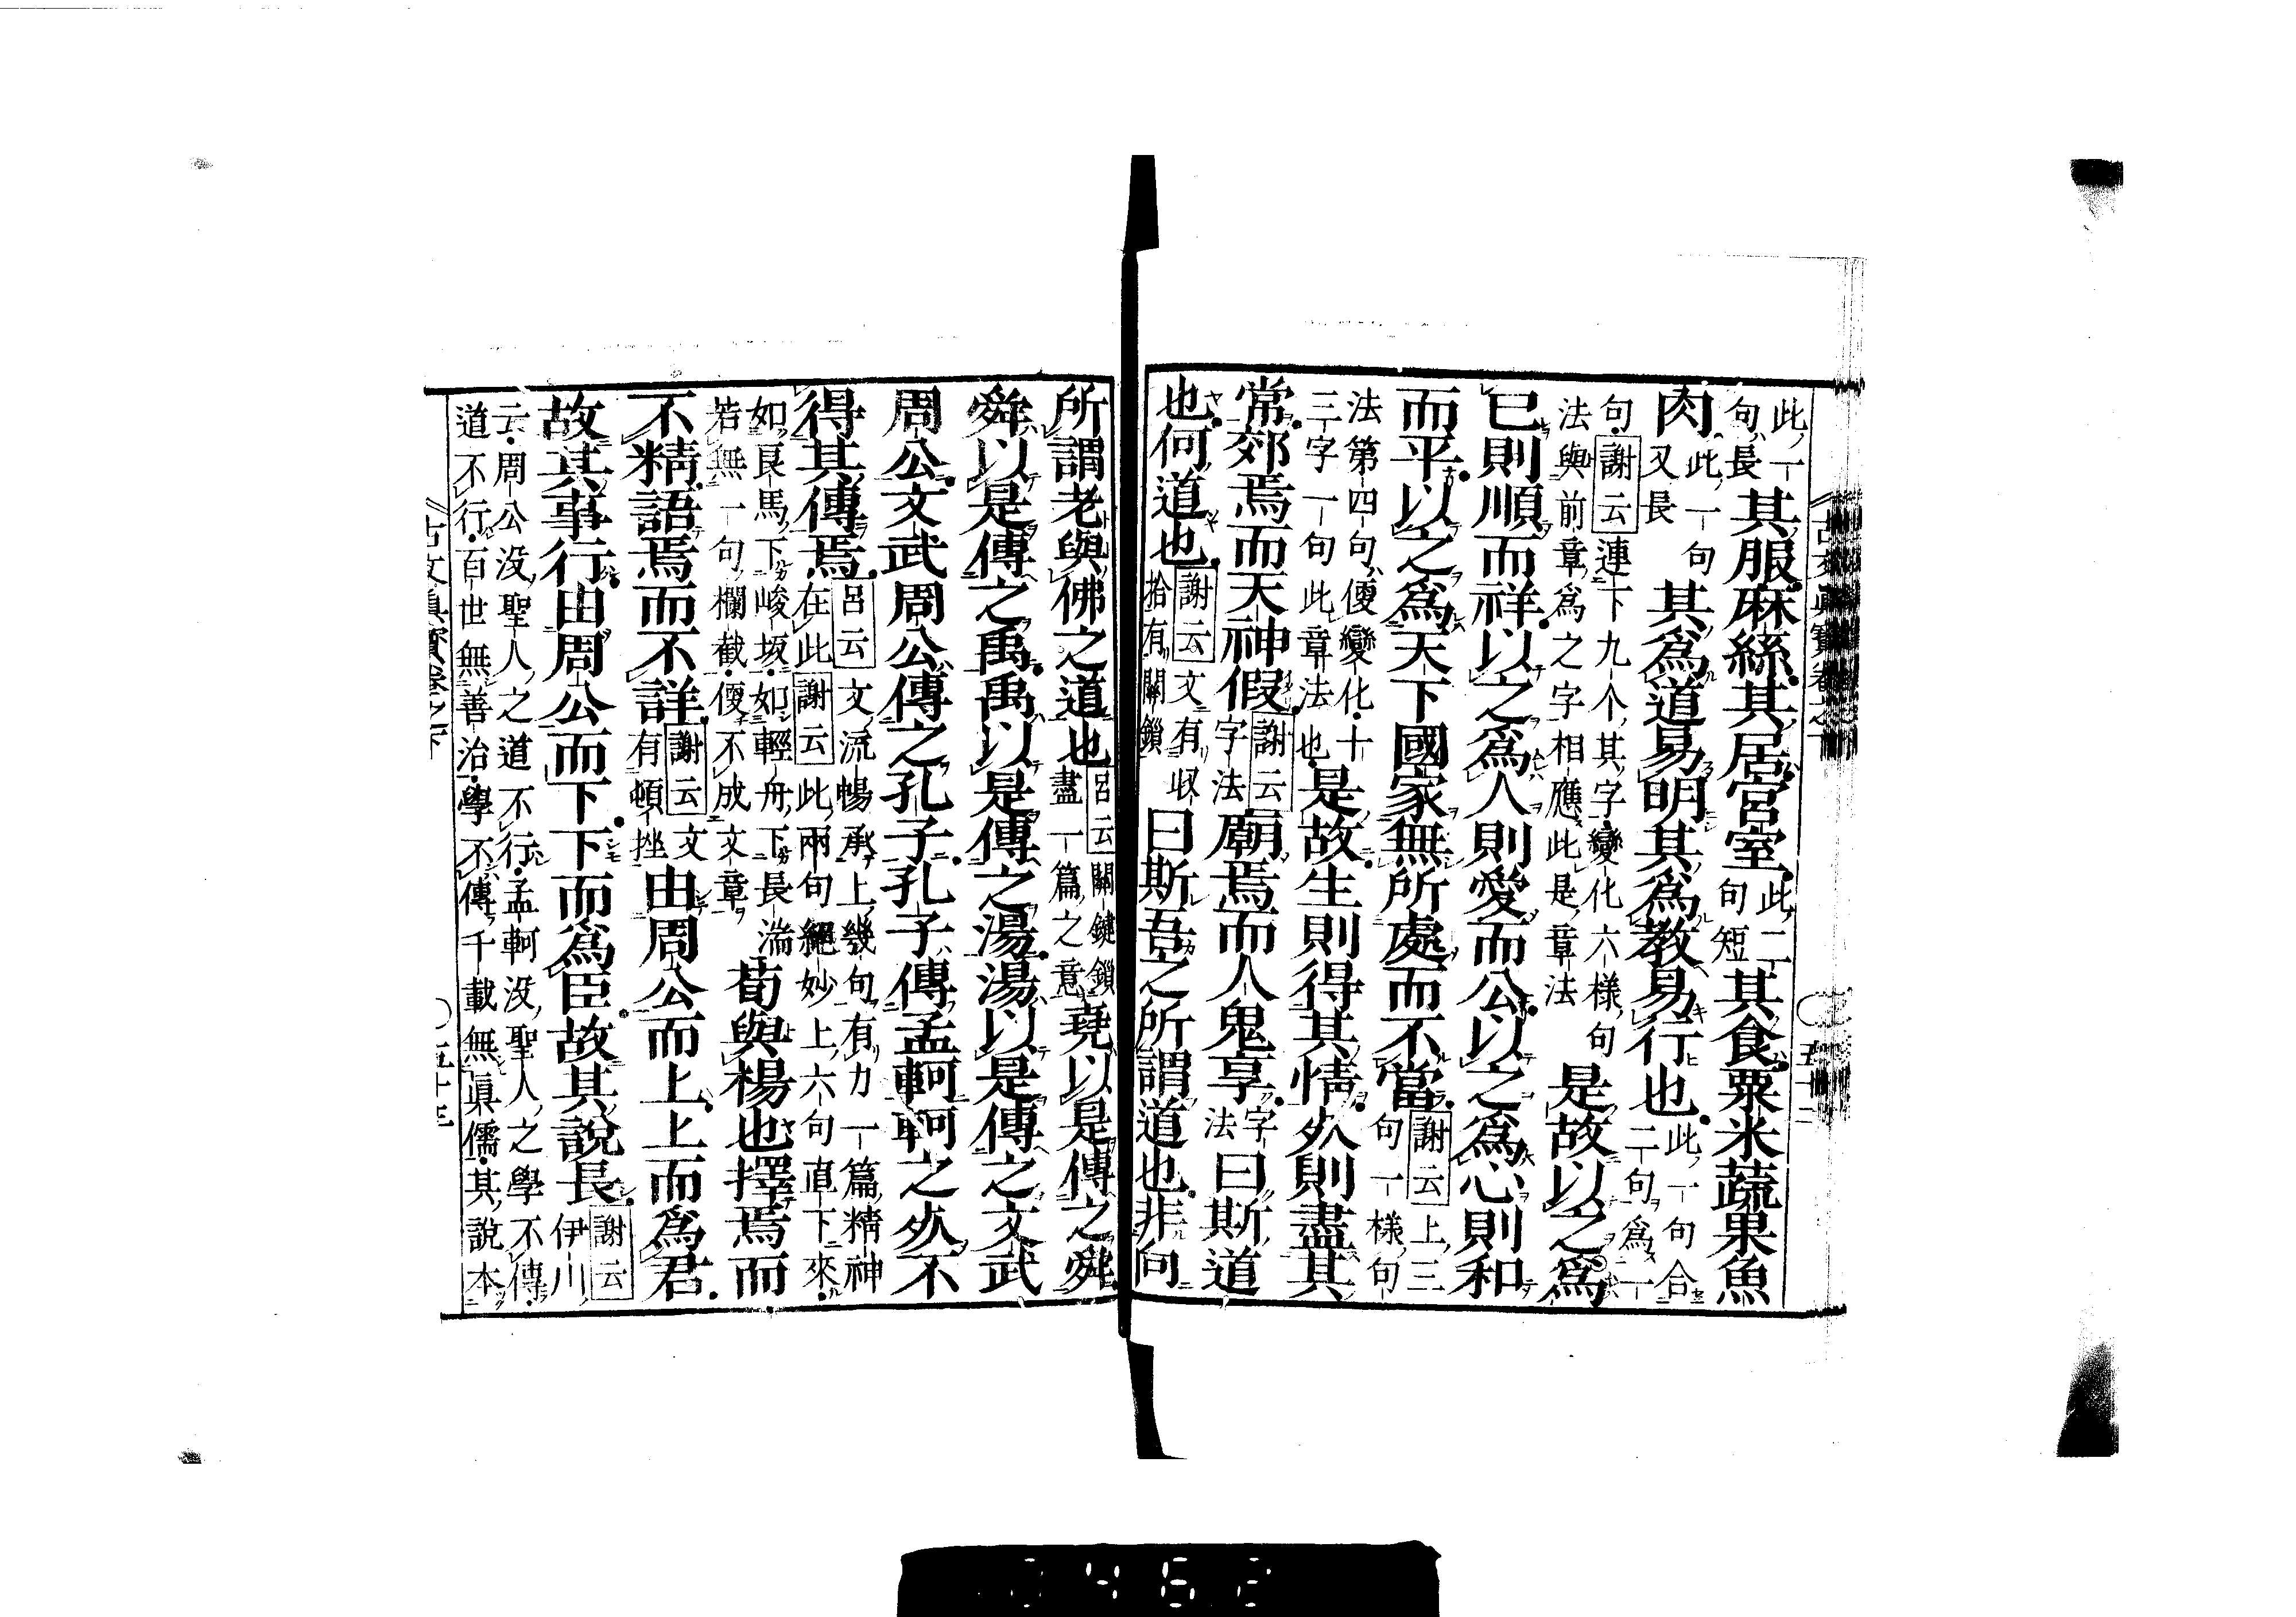 古文眞寶卷之下 五十二
此一句長其服麻絲其居宮室此二句短其食粟米蔬果魚
肉此一句又長其爲道易明其爲教易行也此一句合二句爲一
句謝云連下九个其字變化六樣句法與前章爲之字相應此是章法是故以之爲
已則順而祥以之爲人則愛而公以之爲心則和
而平以之爲天下國家無所處而不當謝云上三句一樣句
法第四句便變化十三字一句此章法也是故生則得其情死則盡其
常郊焉而天神假謝云字法廟焉而人鬼享字法曰斯道
也何道也謝云文有収拾有關鎖曰斯吾之所謂道也非向
所謂老與佛之道也呂云關鍵鎖盡一篇之意堯以是傳之舜
舜以是傳之禹禹以是傳之湯湯以是傳之文武
周公文武周公傳之孔子孔子傳孟軻軻之死不
得其傳焉呂云文流暢承上幾句有力一篇精神在此謝云此兩句絕妙上六句直下來
如良馬下峻坂如輕舟下長湍若無一句欄截便不成文章荀與楊也擇焉而
不精語焉而不詳謝云文有頓挫由周公而上上而爲君
故其事行由周公而下下而爲臣故其說長謝云伊川
云周公没聖人之道不行孟軻没聖人之學不傳道不行百世無善治學不傳千載無眞儒其說本
古文眞寶卷之下 五十三